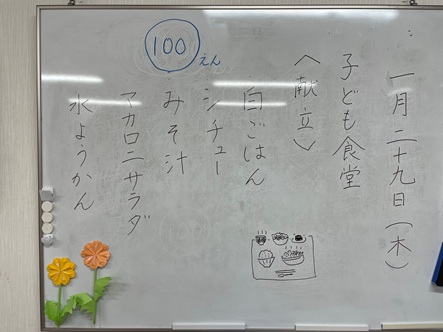 一月二十九日(木)
子ども食堂
〈献立〉
白ごはん
シチュー
みそ汁
マカロニサラダ
水ようかん
100えん